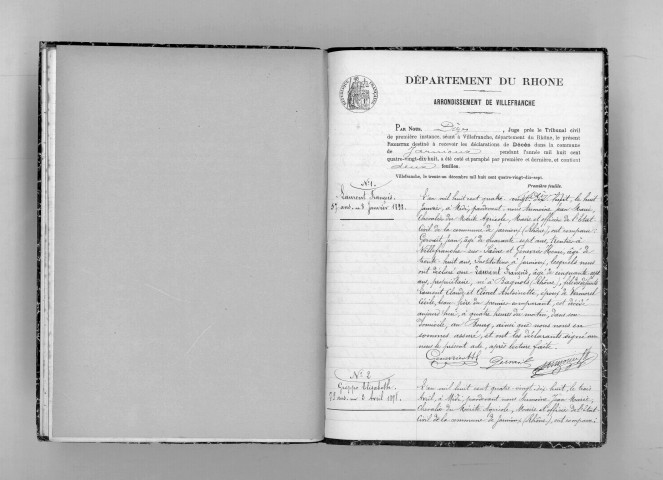 DÉPARTEMENT DU RHONE
ARRONDISSEMENT DE VILLEFRANCHE
PAR NOUS, , Juge près le Tribunal civil
de première instance, séant à Villefranche, département du Rhône, le présent
REGISTRE destiné à recevoir les déclarations de Décès dans la commune
de Jarnioux pendant l'année mil huit cent
quatre-vingt-dix-huit, a été coté et paraphé par première et dernière, et contient
deux feuilles.
Villefranche, le trente-un décembre mil huit cent quatre-vingt-dix-sept.
Première feuille.
N° 1.
Laurent François.
57 ans. – 8 Janvier 1898.
L'an mil huit cent quatre-vingt-dix-huit, le huit
Janvier, à Midi, pardevant nous Jean Marie,
Chevalier du Mérite Agricole, Maire et officier de l'Etat
Civil de la commune de Jarnioux (Rhône), ont comparu
Jean, âgé de quarante sept ans, à
Villefranche-sur-Saône et , âgé de
trente-huit ans, Instituteur à Jarnioux, lesquels nous
ont déclaré que Laurent François, âgé de cinquante sept
ans, propriétaire, né à (Rhône), fils de
Laurent Claude et Antoinette, époux de
, beau-père du premier comparant, est décédé
aujourd'hui, à quatre heures du matin, dans son
domicile, au Bourg, ainsi que nous nous en
sommes assuré, et ont les déclarants signé avec
nous le présent acte, après lecture faite.
N° 2
Elizabeth.
72 ans. – 3 Avril 1898.
L'an mil huit cent quatre-vingt-dix-huit, le trois
Avril, à Midi, pardevant nous Jean Marie,
Chevalier du Mérite Agricole, Maire et officier de l'Etat
Civil de la commune de Jarnioux (Rhône), ont comparu